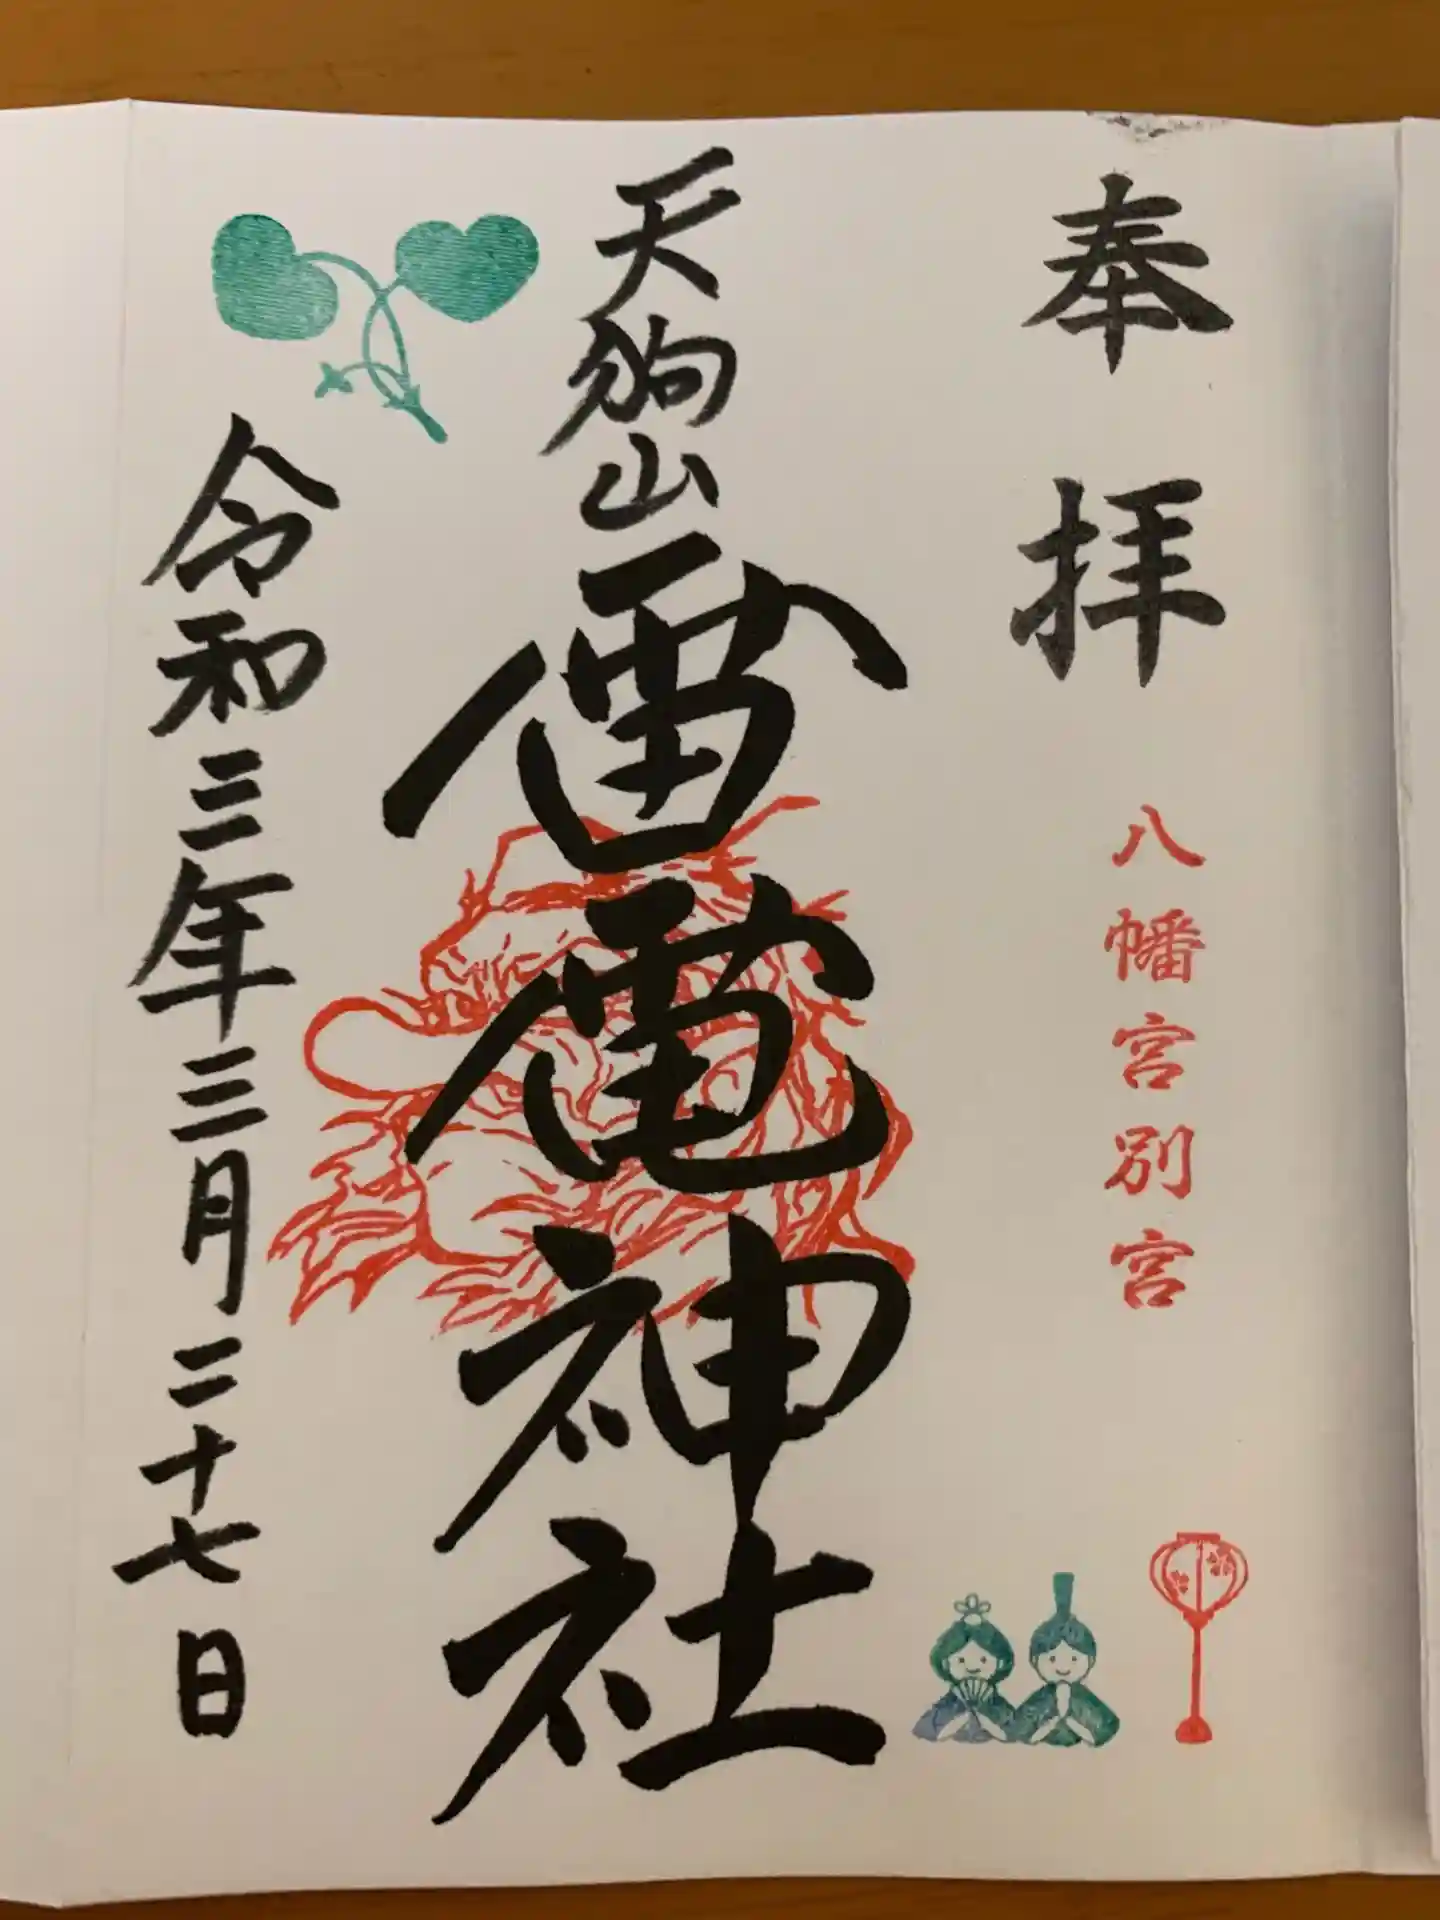 奉拝
八幡宮別宮
天狗山雷電神社
令和三年三月二十七日